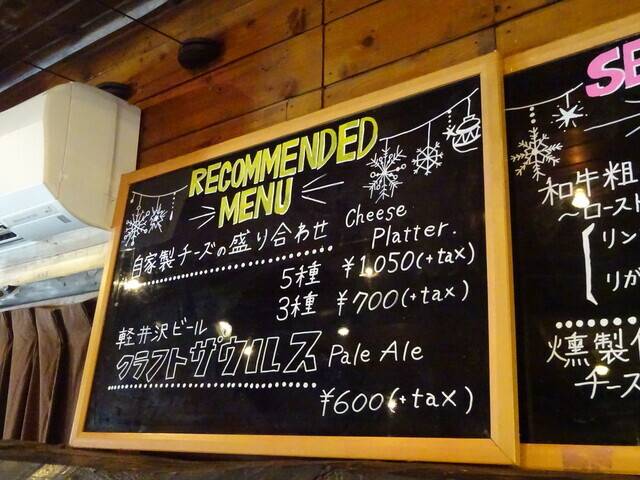 RECOMMENDED
MENU
自家製チーズの盛り合わせ Cheese
Platter.
5種 ¥1,050(+tax)
3種 ¥700(+tax)
軽井沢ビール
クラフトザウルス Pale Ale
¥600(+tax)
SE
和牛粗
〜ロースト
リン
りが
燻製
チーズ